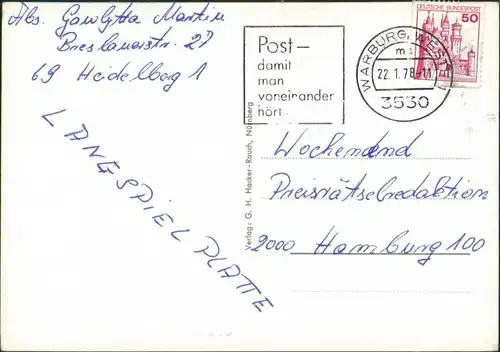 Abs. Gawlytta Martin
Breslauerstr. 27
69 Heidelberg 1
LANGSPIELPLATTE
Post-
damit
man
voneinander
hört
WARBURG, WESTF
22.1.78-11
3530
DEUTSCHE BUNDESPOST
50
Verlag: G. H. Hacker-Rauch, Nürnberg
Wochenend
Preisrätselredaktion
2000 Hamburg 100